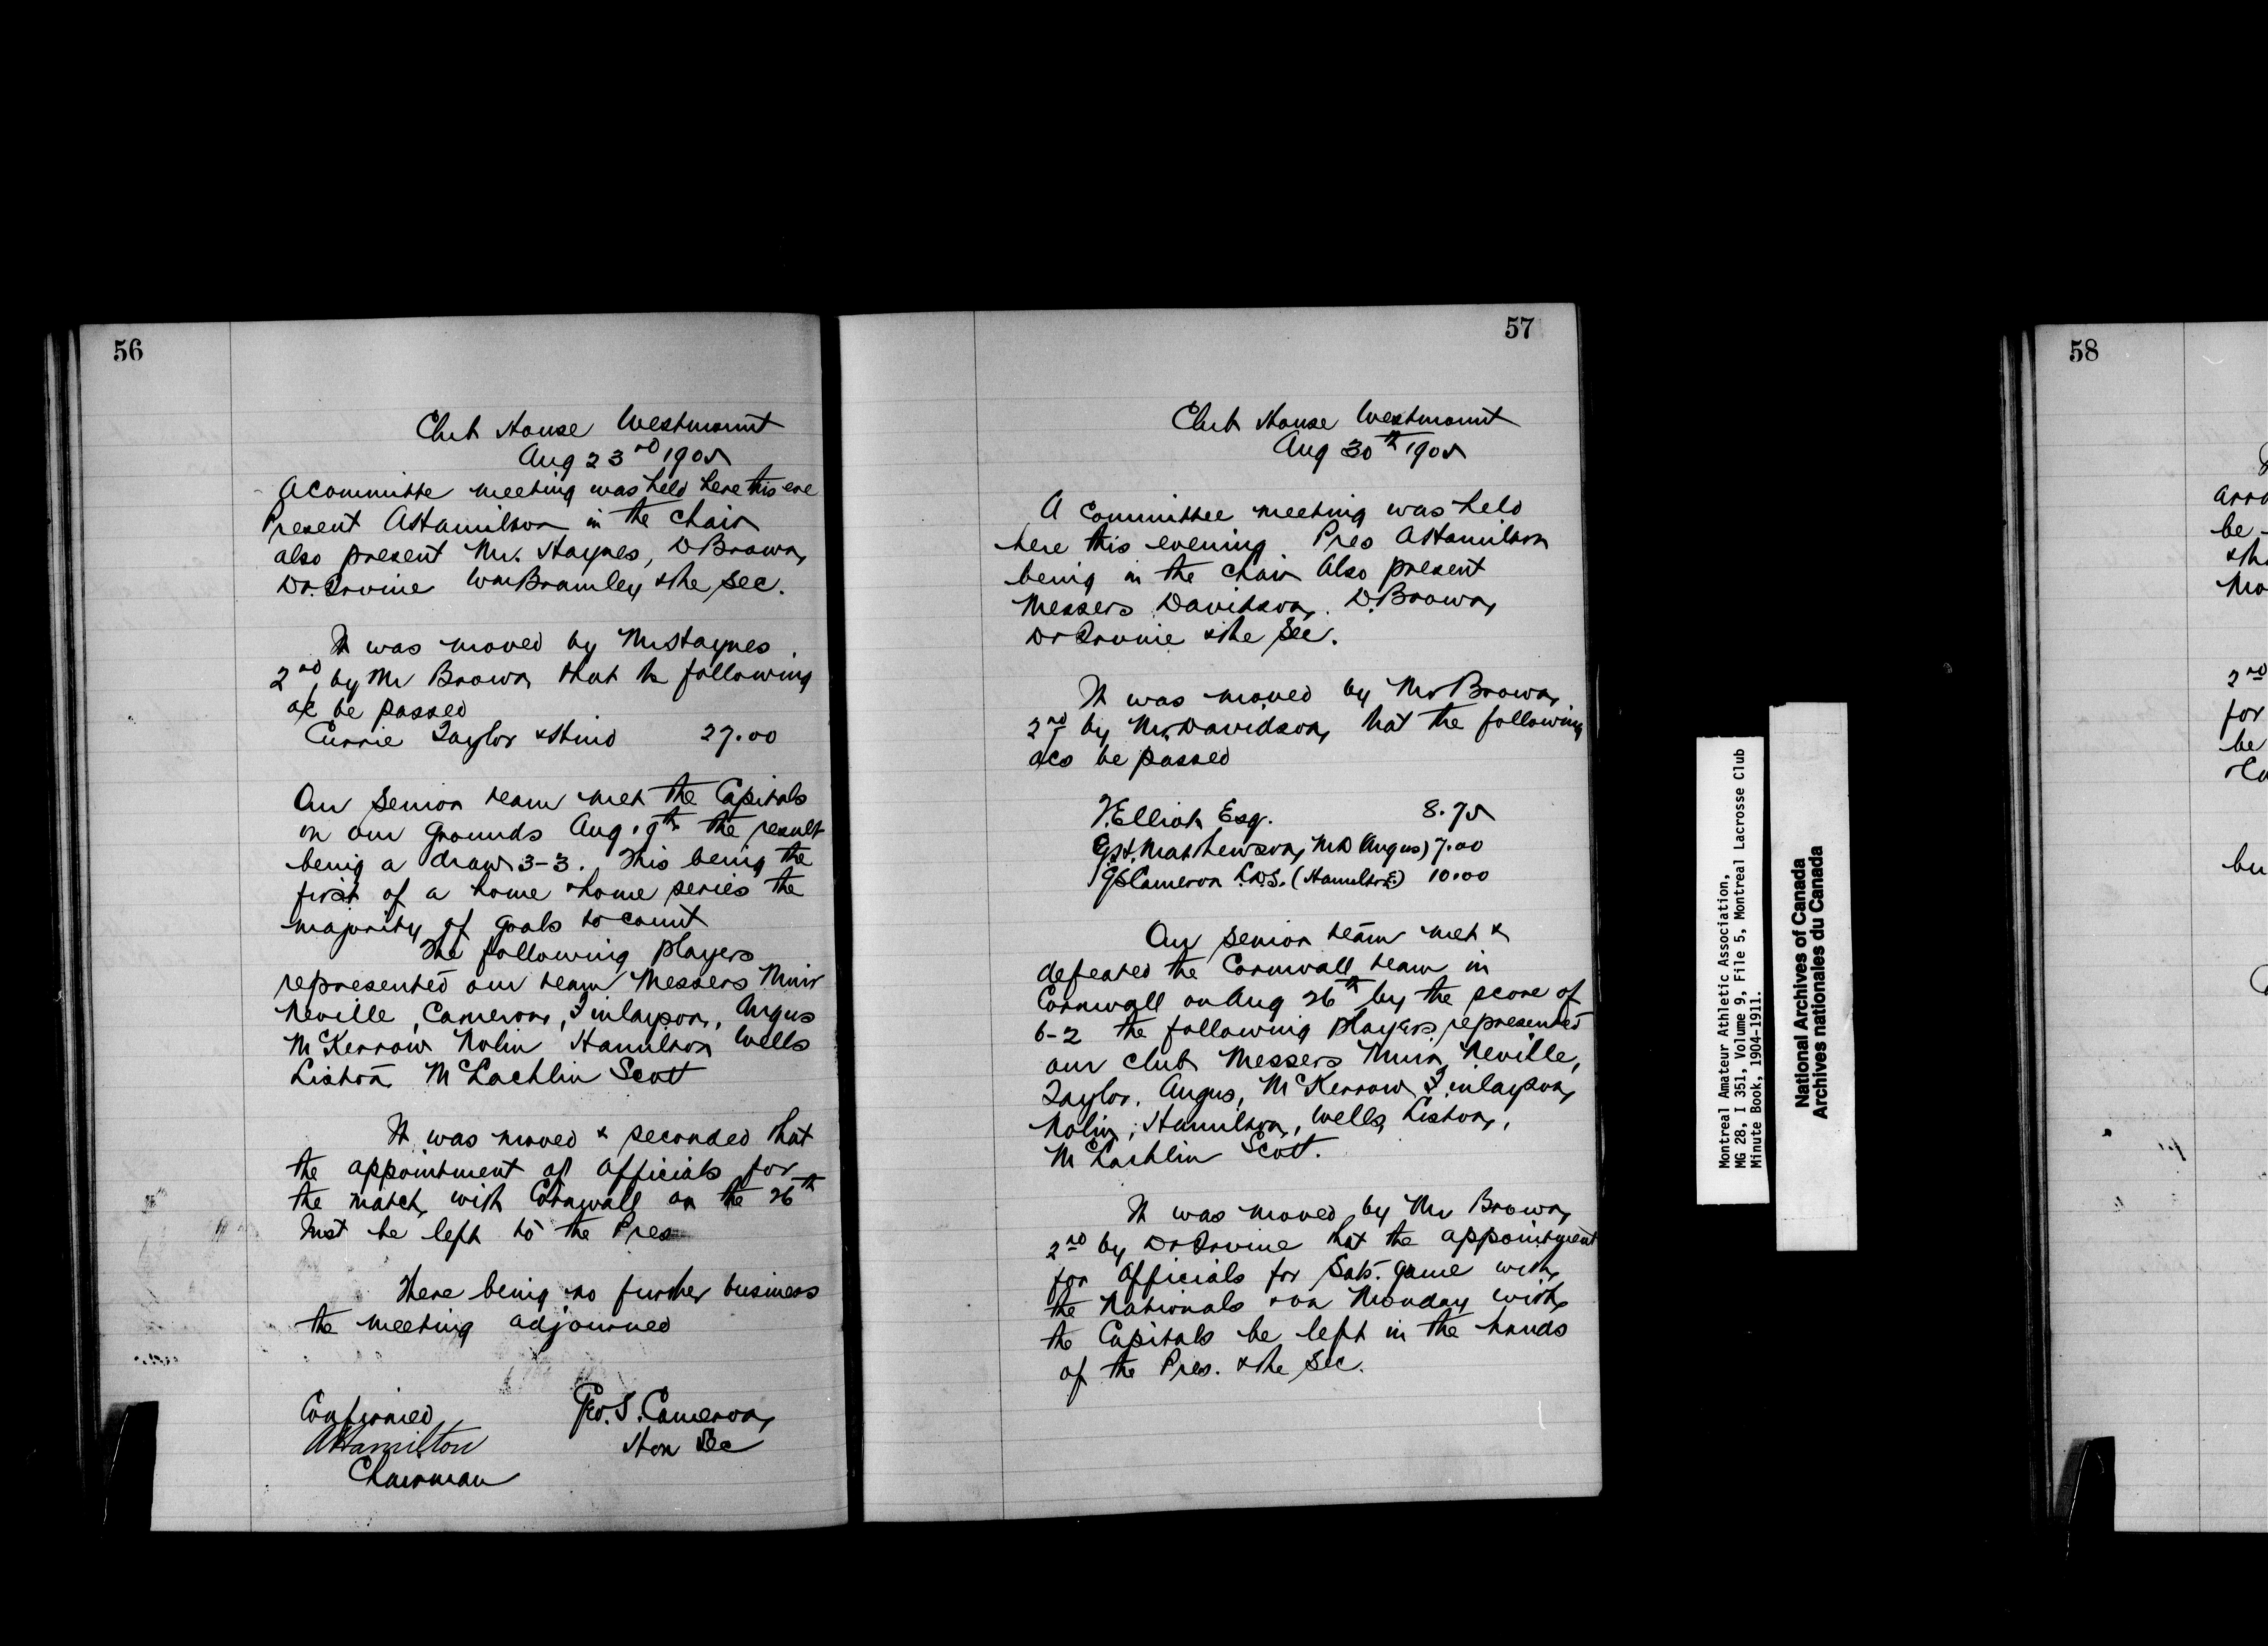 56
Club House Westmount
Aug 23rd 1905
A Committe meeting was held here this eve
Present A Hamilton in the chair
also present Mr. Haynes, D Brown,
Dr. Irvine Wm Bramley & the Sec.
It was moved by Mr Haynes
2nd by Mr Brown that the following
a/c be passed
Currie Taylor & Hind 27.00
Our senior team met the Capitals
on our grounds Aug 19th the result
being a draw 3-3. This being the
first of a home & home series the
majority of goals to count
The following players
represented our team Messers Muir
Neville, Cameron, Finlayson, Angus
McKerrow Nolin Hamilton Wells
Liston McLachlin Scott
It was moved & seconded that
the appointment of Officials for
the match with Cornwall on the 26th
Inst be left to the Pres
There being no further business
the meeting adjourned
Confirmed
A Hamilton
Chairman
Geo. S. Cameron,
Hon Sec
57
Club House Westmount
Aug 30th 1905
A Committee meeting was held
here this evening Pres A Hamilton
being in the chair Also present
Messers Davidson, D. Brown,
Dr Irvine & the Sec.
It was moved by Mr Brown,
2nd by Mr. Davidson, that the following
a/cs be passed
Elliot Esq. 8.75
Mathewson, MD (Angus) 7.00
GS Cameron L.D.S. (Hamilton) 10.00
Our senior team met &
defeated the Cornwall team in
Cornwall on Aug 26th by the score of
6-2 the following players represented
our club Messers Muir, Neville,
Taylor, Angus, McKerrow Finlayson,
Nolin, Hamilton, Wells, Liston,
McLachlin Scott.
It was moved by Mr Brown,
2nd by Dr Irvine that the appointment
for Officials for Sat. game with
the Nationals & on Monday with
the Capitals be left in the hands
of the Pres. & the Sec.
Montreal Amateur Athletic Association,
MG 28, I 351, Volume 9, File 5, Montreal Lacrosse Club
Minute Book, 1904-1911.
National Archives of Canada
Archives nationales du Canada
58
be
2nd
for
be